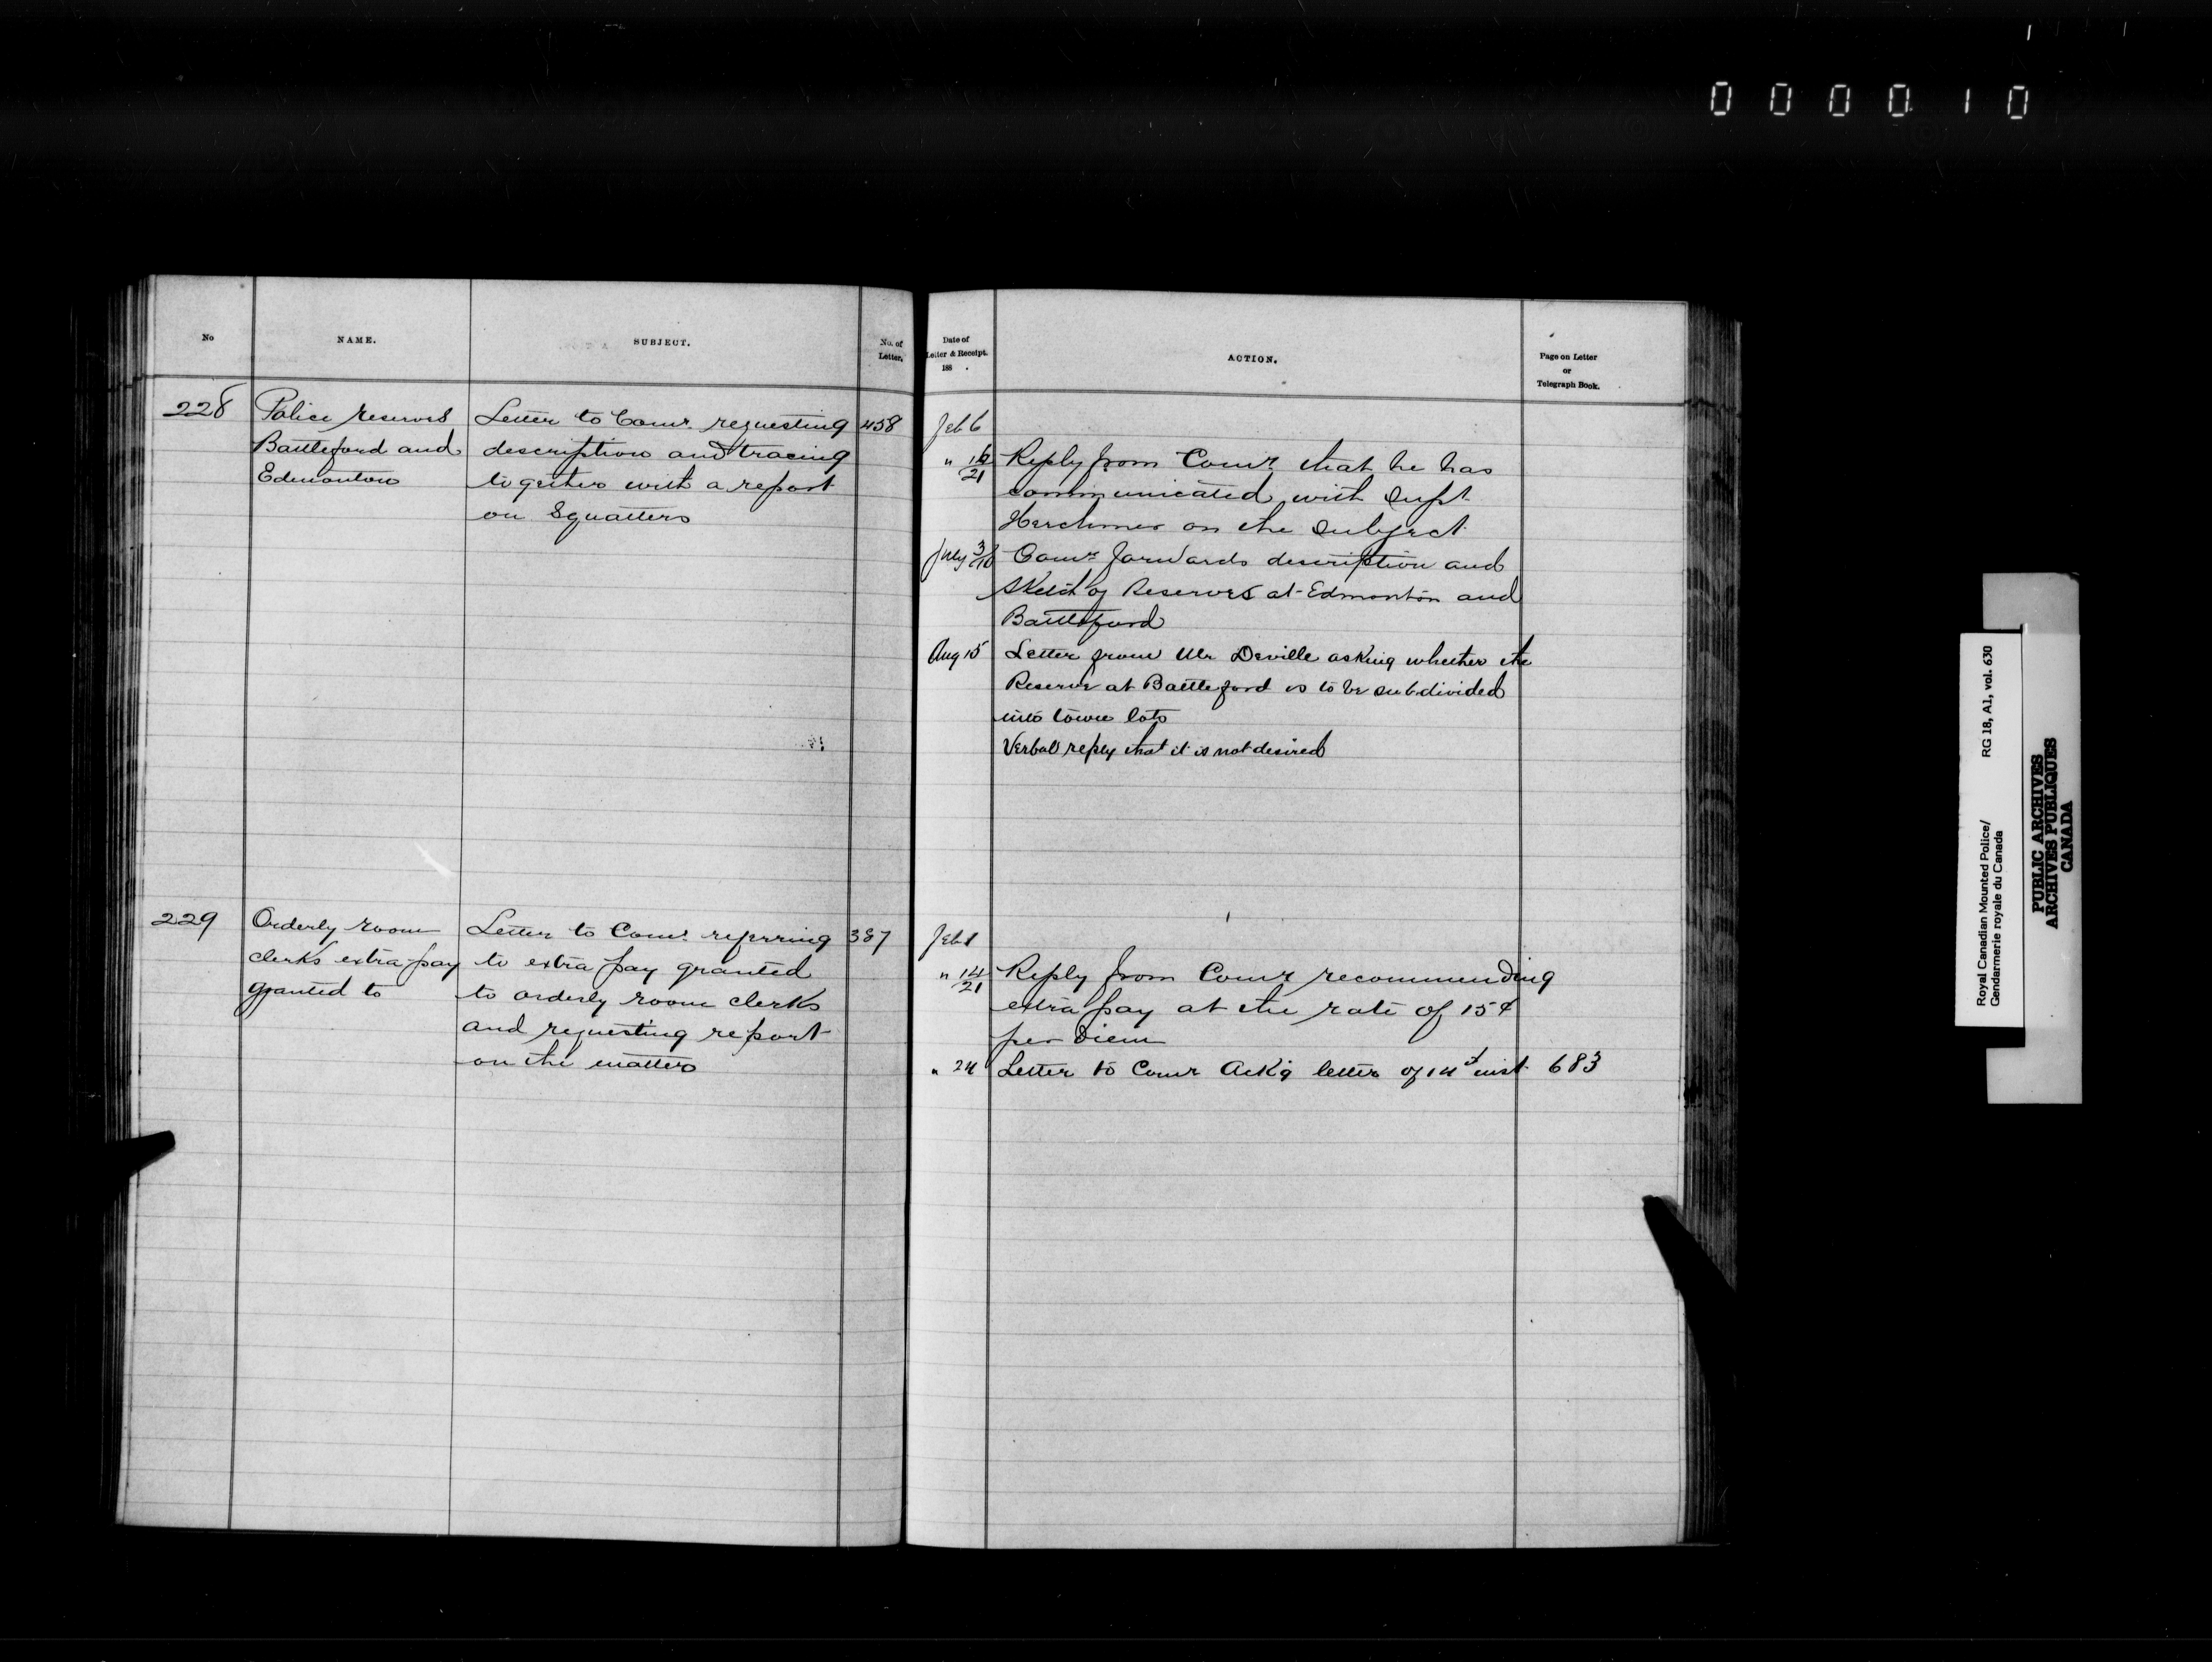 0 0 0 0 1 0
No
NAME.
SUBJECT.
No. of
Letter.
Date of
Letter & Receipt.
188 .
ACTION.
Page on Letter
or
Telegraph Book.
228
Police reserves
Battleford and
Edmonton
Letter to Comr. requesting
description and tracing
together with a report
on Squatters
458
Feb 6
" 21
Reply from Comr. that he has
communicated with Supt
Herchmer on the subject
July 3/10
Comr. forwards description and
sketch of Reserves at Edmonton and
Battleford
Aug 15
Letter from Mr Deville asking whether the
Reserve at Battleford is to be subdivided
into town lots
Verbal reply that it is not desired
229
Orderly room
clerks extra pay
granted to
Letter to Comr. referring
to extra pay granted
to orderly room clerks
and requesting report
on the matter
387
Feb 1
" 14/21
Reply from Comr recommending
extra pay at the rate of 15¢
per diem
" 24
Letter to Comr Ack'g letter of 14th inst
683
Royal Canadian Mounted Police/ RG 18, A1, vol. 630
Gendarmerie royale du Canada
PUBLIC ARCHIVES
ARCHIVES PUBLIQUES
CANADA